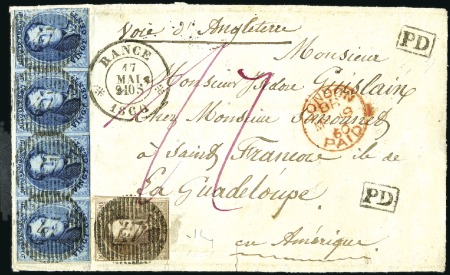 Voie d'Angleterre
PD
RANCE
17
MAI
1860
Monsieur
Monsieur Ghislain
LONDON
MY 19
60
PAID
Chez Monsieur
à Saint François île de
La Guadeloupe.
PD
en Amérique